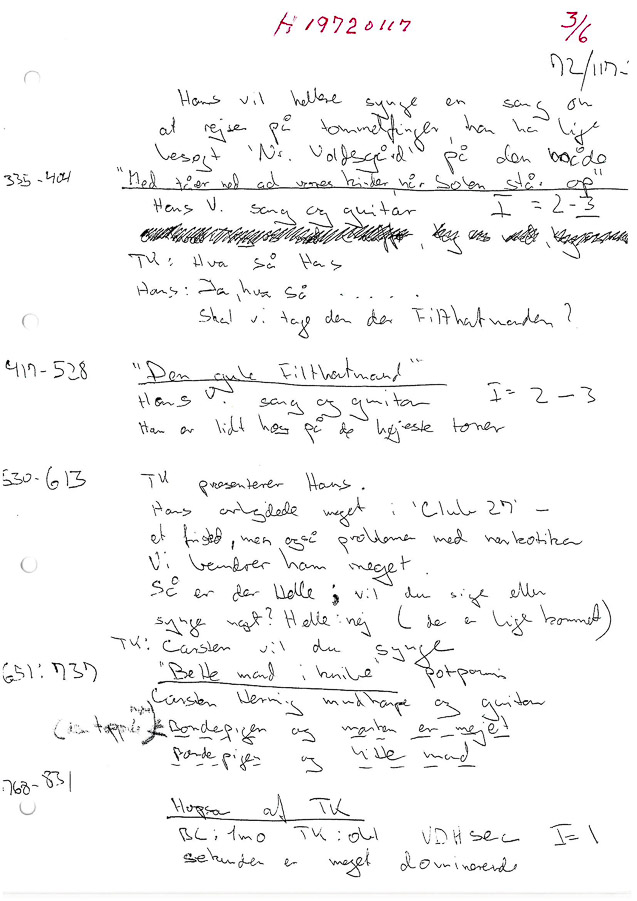 Hj 19720117
3/6
72/117-
Hans vil hellere synge en sang om
at rejse på tommelfinger, han har lige
besøgt 'Nr. Vosborg' på den måde
335-404 "Med tåer ned ad vores kinder, når Solen står op"
Hans V. sang og guitar I = 2-3
TK: Hva så Hans
Hans: Ja, hva så . . . . . .
Skal vi tag den der Filthatmanden?
417-528 "Den gule Filthatmand"
Hans V. sang og guitar I = 2-3
Han er lidt hæs på de højeste toner
530-613 TK præsenterer Hans.
Hans arbejdede meget i 'Club 27' -
et fristed, men også problemer med narkotika
Vi beundrer ham meget.
Så er der Helle; vil du sige eller
synge noget? Helle: nej (de er lige kommet)
TK: Carsten vil du synge
651:737 "Bette mand i knibe" potpouri
Carsten Herning mundharpe og guitar
Bondepigen og manden er meget
Bondepigen og lille mand
768-831
Hopsa af TK
BC: 1mo TK: obl VDH sec I=1
sekunden er meget dominerende